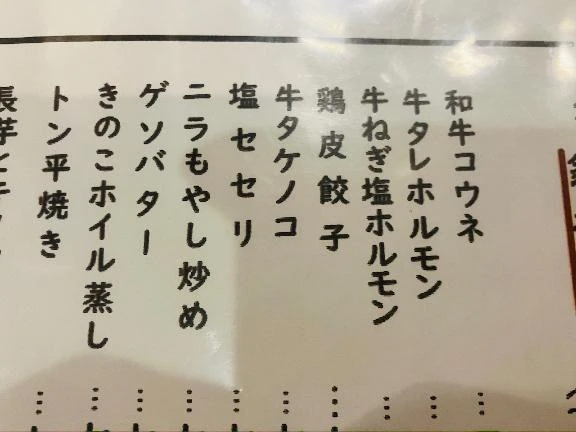 和牛コウネ
牛タレホルモン
牛ねぎ塩ホルモン
鶏皮餃子
牛タケノコ
塩セセリ
ニラもやし炒め
ゲソバター
きのこホイル蒸し
トン平焼き
長芋と